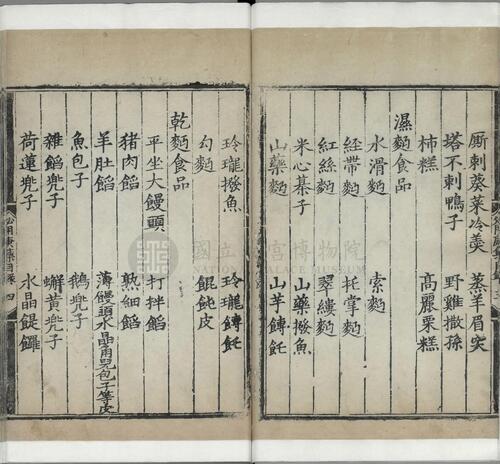 厮剌葵菜冷羮 蒸羊眉突
塔不剌鴨子 野雞撒孫
柿糕 高麗栗糕
濕麵食品
水滑麵 索麵
經帶麵 托掌麵
紅絲麵 翠縷麵
米心棊子 山藥撥魚
山藥麵 山芋餺飥
玲瓏撥魚 玲瓏餺飥
勾麵 餛飩皮
乾麵食品
平坐大饅頭 打拌餡
豬肉餡 熟細餡
羊肚餡 薄饅頭水晶角兒包子等皮
魚包子 鵝兠子
雜餡兠子 蠏黄兠子
荷蓮兠子 水晶䭔䭔
國立 宮博物院
PALACE MUSEUM
四